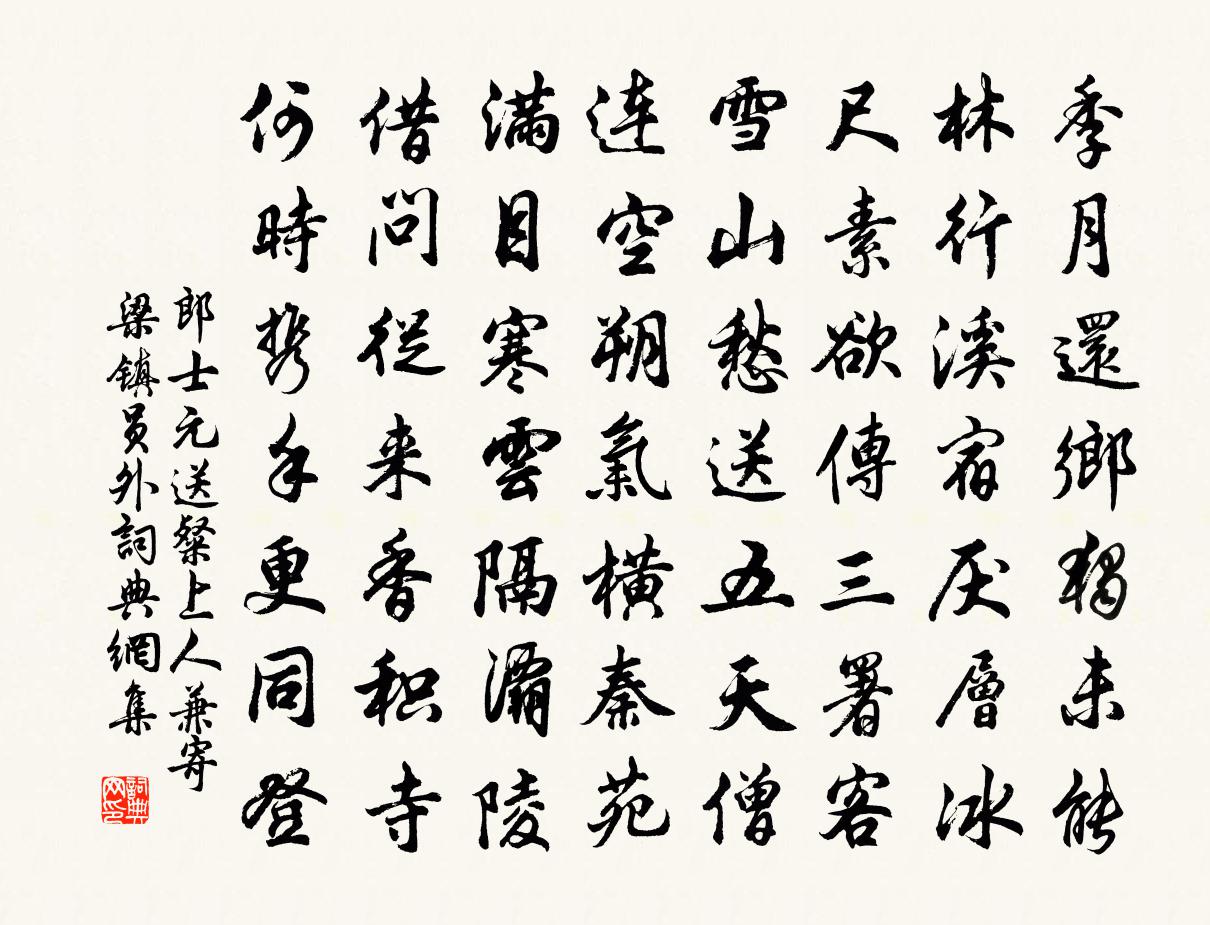 季月還鄉獨未能
林行溪宿厌層冰
尺素欲傳三署客
雪山愁送五天僧
连空朔氣橫秦苑
满目寒雲隔灞陵
借問従来香积寺
何時携手更同登
郎士元送粲上人兼寄
梁镇员外詞典網集
詞典网印